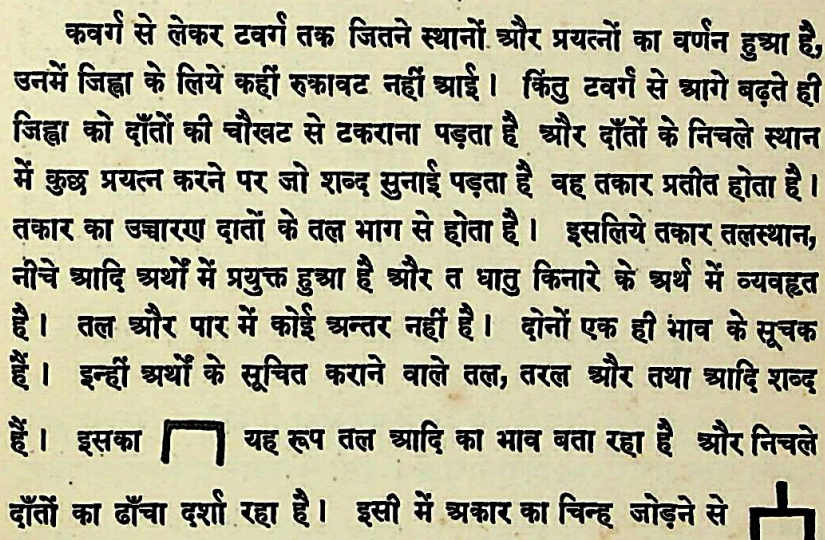 कवर्ग से लेकर टवर्ग तक जितने स्थानों और प्रयत्नों का वर्णन हुआ है,
उनमें जिह्वा के लिये कहीं रुकावट नहीं आई। किंतु टवर्ग से आगे बढ़ते ही
जिह्वा को दाँतों की चौखट से टकराना पड़ता है और दाँतों के निचले स्थान
में कुछ प्रयत्न करने पर जो शब्द सुनाई पड़ता है वह तकार प्रतीत होता है।
तकार का उच्चारण दातों के तल भाग से होता है। इसलिये तकार तलस्थान,
नीचे आदि अर्थों में प्रयुक्त हुआ है और त धातु किनारे के अर्थ में व्यवहृत
है। तल और पार में कोई अन्तर नहीं है। दोनों एक ही भाव के सूचक
हैं। इन्हीं अर्थों के सूचित कराने वाले तल, तरल और तथा आदि शब्द
हैं। इसका यह रूप तल आदि का भाव बता रहा है और निचले
दाँतों का ढाँचा दर्शा रहा है। इसी में अकार का चिन्ह जोड़ने से